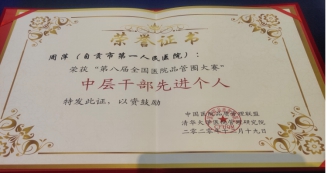 荣誉证书
周萍（自贡市第一人民医院）：
荣获“第八届全国医院品管圈大赛”
中层干部先进个人
特发此证，以资鼓励
中国医院品质管理联盟
清华大学医院管理研究院
二〇二〇年十二月十九日